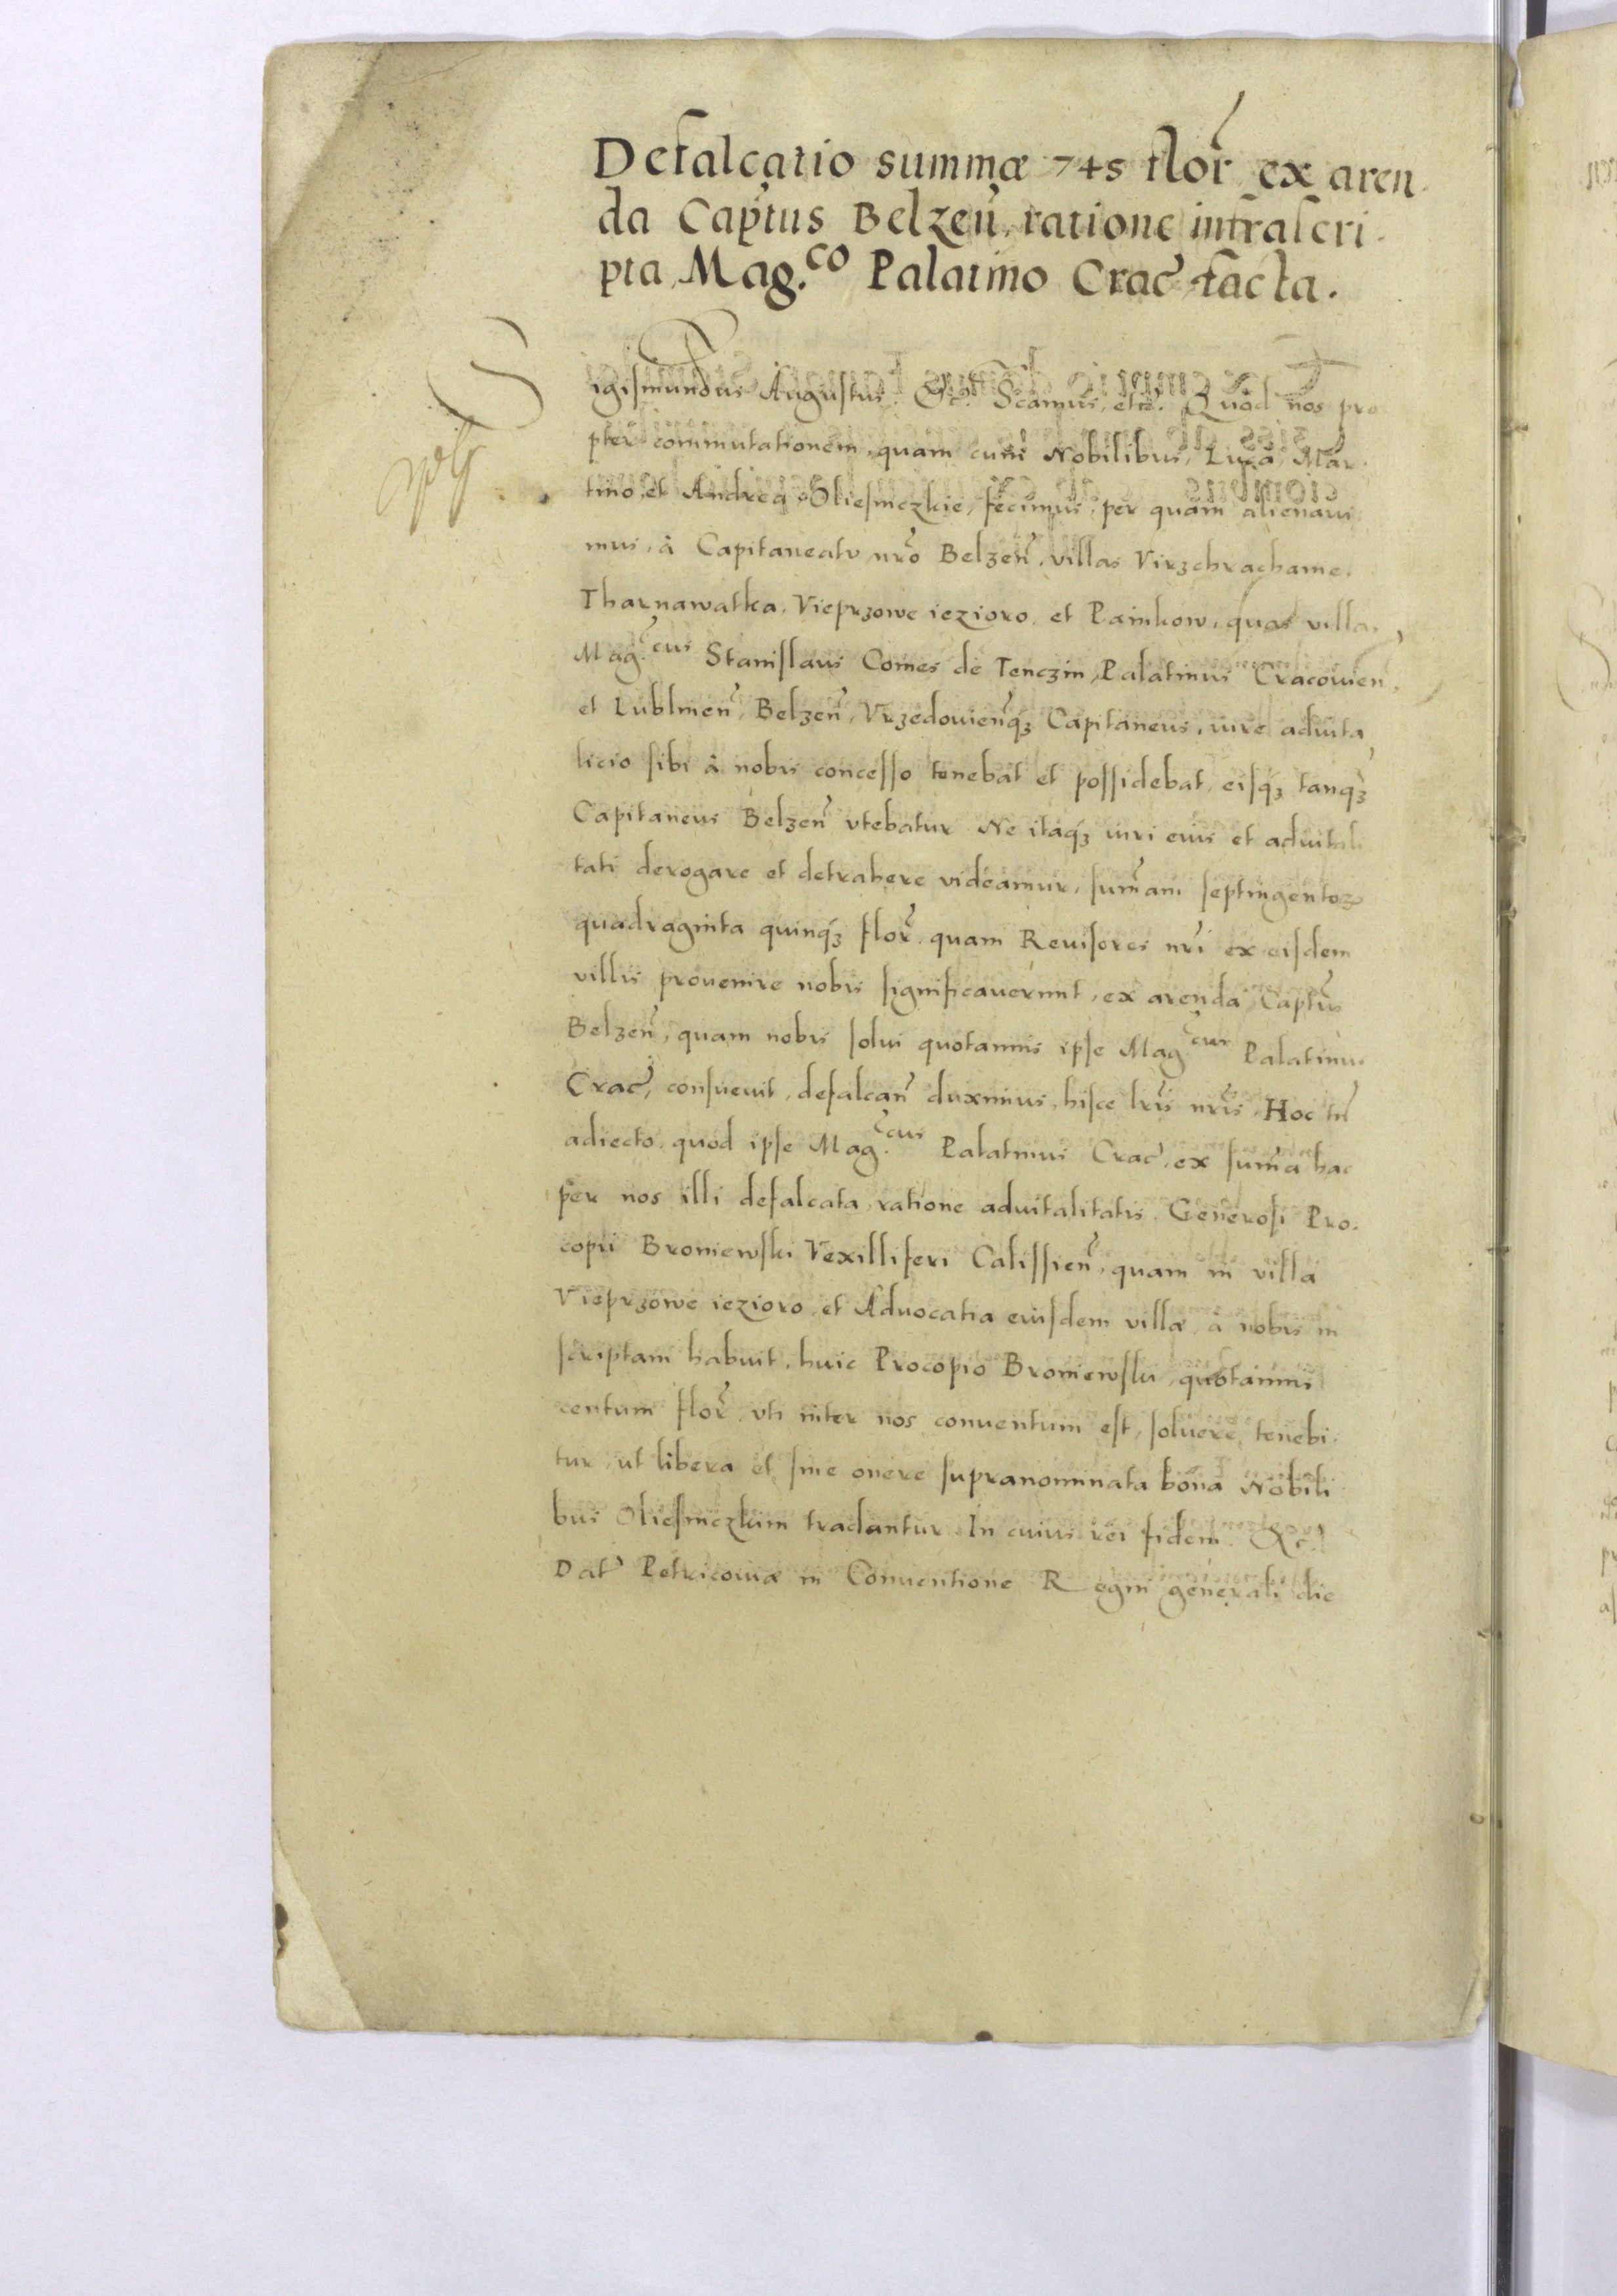 Defalcatio summæ 745 flor̃ ex aren
da Cap̃tus Belzeñ, ratione infrascri
pta, Mag.co Palatino Crac̃ facta.
Sigismundus Augustus. &c. Sc̃amus, etc̃. Quod nos pro
pter commutationem, quam cum Nobilibus, Luca, Mar
tino, et Andrea Oliesniczkie, fecimus, per quam alienaui
mus, à Capitaneatu nr̃o Belzeñ, villas Virzchrachanie.
Tharnawatka, Vieprzowe iezioro, et Pankow, quas villas
Mag.cus Stanislaus Comes de Tenczin, Palatinus Cracouieñ,
et Lublineñ, Belzeñ, Vrzedouieñq3 Capitaneus, iure aduita
licio sibi à nobis concesso tenebat et possidebat, eisq3 tanq̃3
Capitaneus Belzeñ vtebatur Ne itaq3 iuri eius et aduitali
tati derogare et detrahere videamur, sum̃am septingentor
quadraginta quinq3 flor̃, quam Reuisores nr̃i ex eisdem
villis prouenire nobis significauerunt, ex arenda Capt̃us
Belzeñ, quam nobis solui quotannis ipse Mag.cus Palatinus
Crac̃, consueuit, defalcañ duximus, hisce lr̃is nr̃is. Hoc tñ
adiecto, quod ipse Mag.cus Palatinus Crac̃, ex sum̃a hac
per nos illi defalcata, ratione aduitalitatis Generosi Pro
copii Broniewski Vexilliferi Calissieñ, quam in villa
Vieprzowe iezioro, et Aduocatia eiusdem villæ à nobis in
scriptam habuit, huic Procopio Broniewski, quotannis
centum flor̃ vti inter nos conuentum est, soluere tenebi
tur, ut libera et sine onere supranominata bona Nobili
bus Oliesniczkim tradantur. In cuius rei fidem. &c.
Dat̃ Petricouiæ in Conuentione Regni generali die